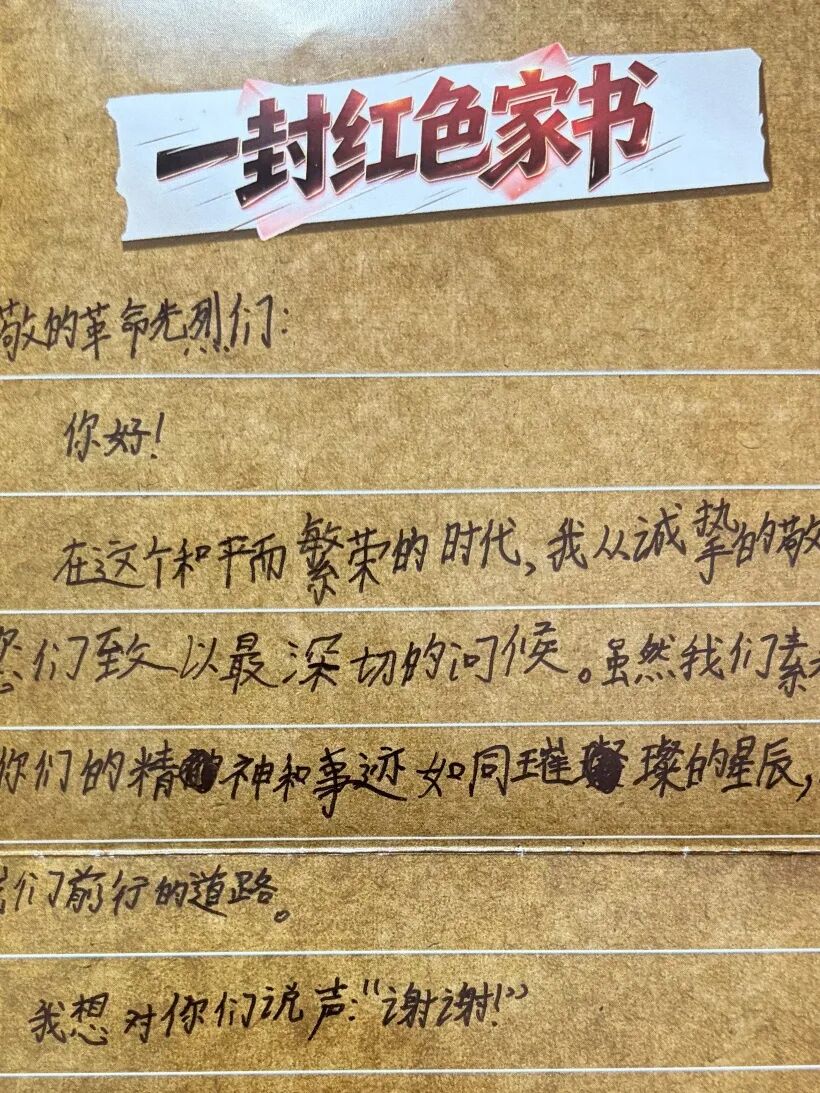 一封红色家书
敬的革命先烈们:
你好!
在这个和平而繁荣的时代,我从诚挚的敬
您们致以最深切的问候。虽然我们素
你们的精神和事迹如同璀璨的星辰,
我们前行的道路。
我想对你们说声:“谢谢!”